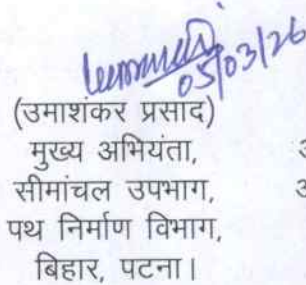 05/03/26
(उमाशंकर प्रसाद)
मुख्य अभियंता,
सीमांचल उपभाग,
पथ निर्माण विभाग,
बिहार, पटना।